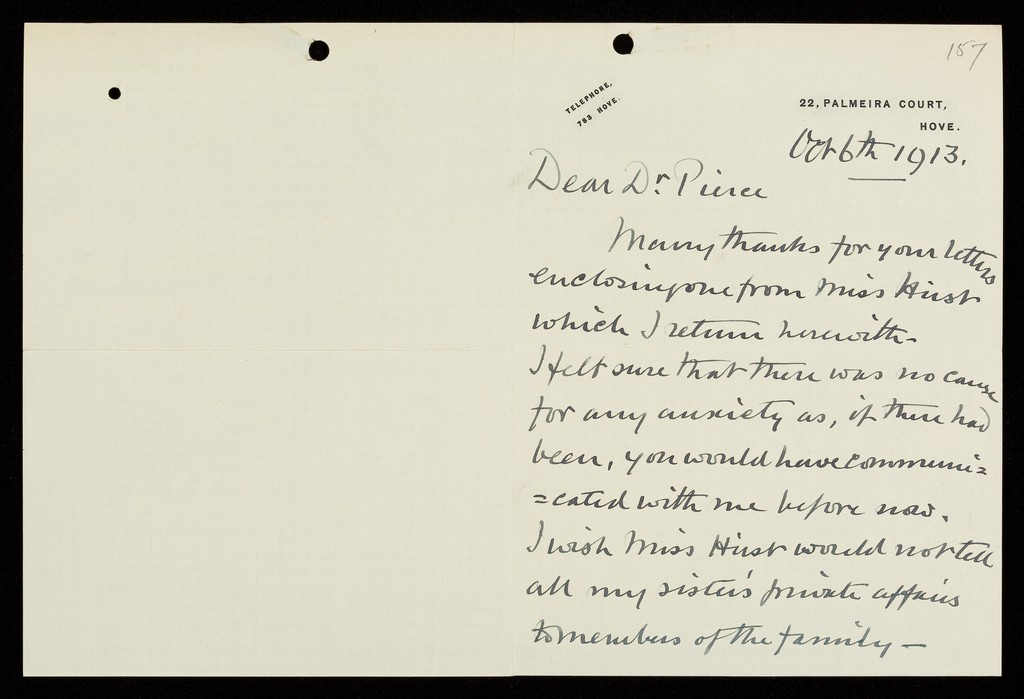 157
TELEPHONE,
783 HOVE.
22, PALMEIRA COURT,
HOVE.
Oct 6th 1913.
Dear Dr. Pierce
Many thanks for your letters
enclosing one from Miss Hirst
which I return herewith -
I felt sure that there was no cause
for any anxiety as, if there had
been, you would have communi=
=cated with me before now.
I wish Miss Hirst would not tell
all my sister's private affairs
to members of the family -